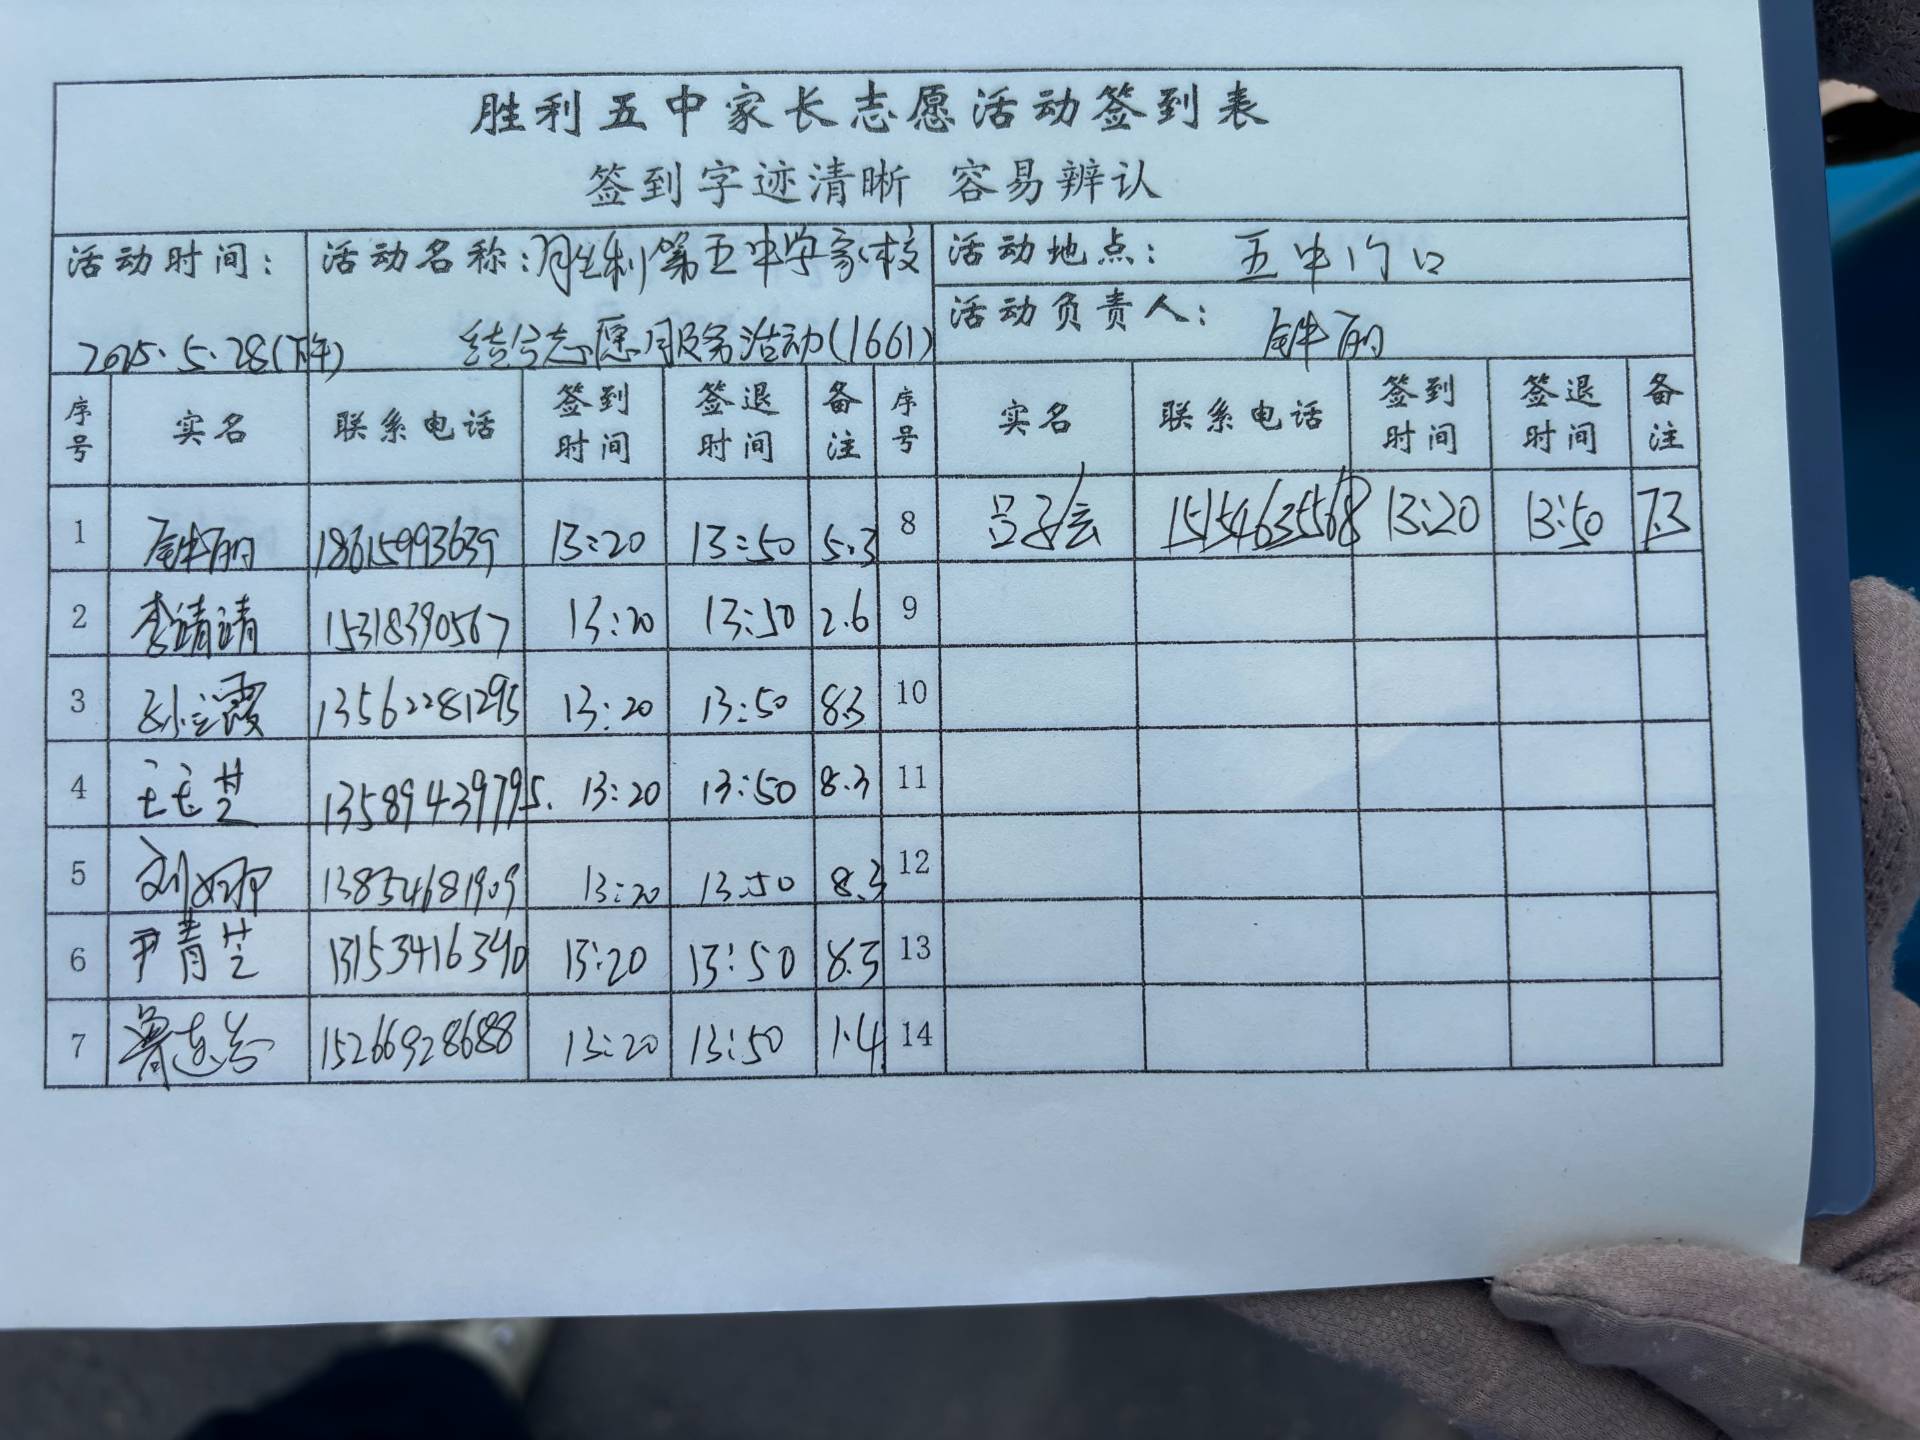 胜利五中家长志愿活动签到表
签到字迹清晰 容易辨认
活动时间: 活动名称:胜利第五中学家校 活动地点: 五中门口
2025.5.28(下午) 结合志愿服务活动(1661) 活动负责人: 丽
序号 实名 联系电话 签到时间 签退时间 备注 序号 实名 联系电话 签到时间 签退时间 备注
1 丽 18615993639 13:20 13:50 5.3 8 吕会 15154635568 13:20 13:50 7.3
2 李靖靖 15318390567 13:20 13:50 2.6 9
3 孙霞 13562281295 13:20 13:50 8.3 10
4 王芝 13589439795. 13:20 13:50 8.3 11
5 刘娜 13854681909 13:20 13:50 8.3 12
6 尹青芝 13153416390 13:20 13:50 8.3 13
7 鲁莲芬 15266928688 13:20 13:50 1.4 14